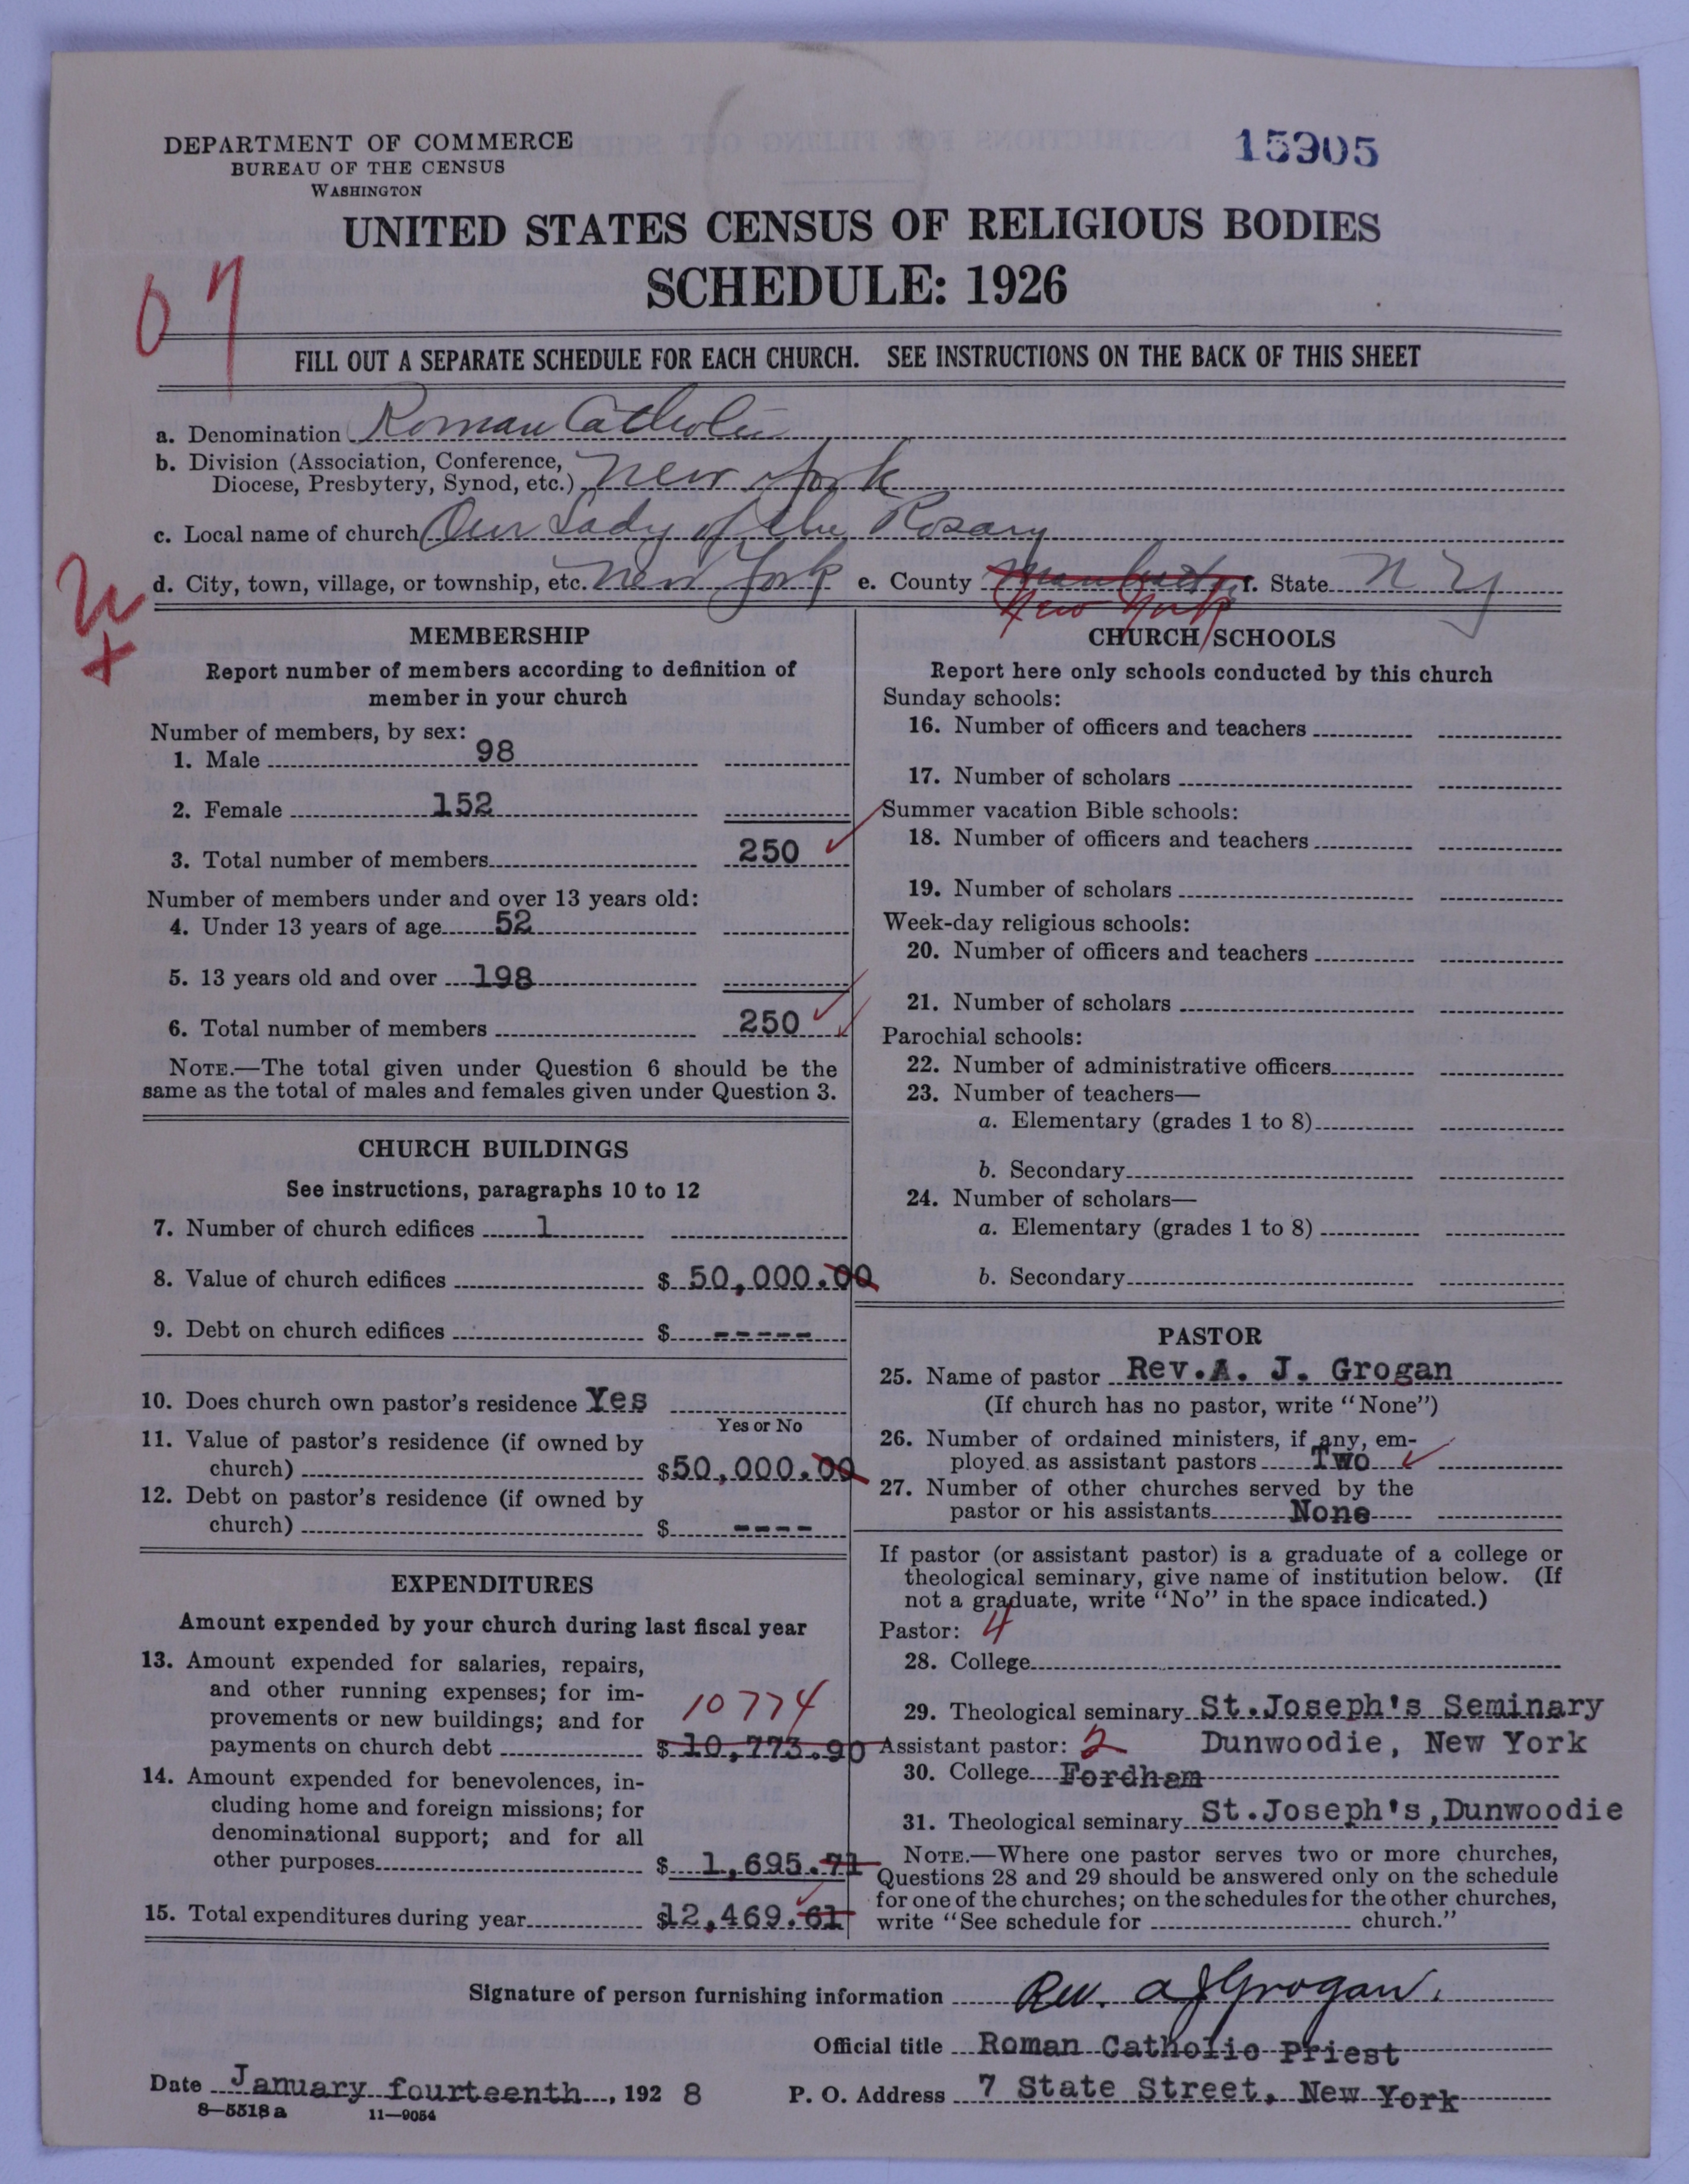 DEPARTMENT OF COMMERCE
BUREAU OF THE CENSUS
WASHINGTON
15905
UNITED STATES CENSUS OF RELIGIOUS BODIES
SCHEDULE: 1926
FILL OUT A SEPARATE SCHEDULE FOR EACH CHURCH. SEE INSTRUCTIONS ON THE BACK OF THIS SHEET
a. Denomination Roman Catholic
b. Division (Association, Conference,
Diocese, Presbytery, Synod, etc.) New York
c. Local name of church Our Lady of the Rosary
d. City, town, village, or township, etc. New York e. County Manhattan f. State N Y
New York
MEMBERSHIP
Report number of members according to definition of
member in your church
Number of members, by sex:
1. Male 98
2. Female 152
3. Total number of members 250
Number of members under and over 13 years old:
4. Under 13 years of age 52
5. 13 years old and over 198
6. Total number of members 250
NOTE.—The total given under Question 6 should be the
same as the total of males and females given under Question 3.
CHURCH BUILDINGS
See instructions, paragraphs 10 to 12
7. Number of church edifices 1
8. Value of church edifices $ 50,000.00
9. Debt on church edifices $ -----
10. Does church own pastor's residence Yes
Yes or No
11. Value of pastor's residence (if owned by
church) $50,000.00
12. Debt on pastor's residence (if owned by
church) $ ----
EXPENDITURES
Amount expended by your church during last fiscal year
13. Amount expended for salaries, repairs,
and other running expenses; for im-
provements or new buildings; and for
10774
payments on church debt $ 10,773.90
14. Amount expended for benevolences, in-
cluding home and foreign missions; for
denominational support; and for all
other purposes $ 1,695.71
15. Total expenditures during year $12,469.61
CHURCH SCHOOLS
Report here only schools conducted by this church
Sunday schools:
16. Number of officers and teachers
17. Number of scholars
Summer vacation Bible schools:
18. Number of officers and teachers
19. Number of scholars
Week-day religious schools:
20. Number of officers and teachers
21. Number of scholars
Parochial schools:
22. Number of administrative officers
23. Number of teachers—
a. Elementary (grades 1 to 8)
b. Secondary
24. Number of scholars—
a. Elementary (grades 1 to 8)
b. Secondary
PASTOR
25. Name of pastor Rev.A. J. Grogan
(If church has no pastor, write "None")
26. Number of ordained ministers, if any, em-
ployed as assistant pastors Two
27. Number of other churches served by the
pastor or his assistants None
If pastor (or assistant pastor) is a graduate of a college or
theological seminary, give name of institution below. (If
not a graduate, write "No" in the space indicated.)
Pastor: 4
28. College
29. Theological seminary St.Joseph's Seminary
Assistant pastor: 2 Dunwoodie, New York
30. College Fordham
31. Theological seminary St.Joseph's,Dunwoodie
NOTE.—Where one pastor serves two or more churches,
Questions 28 and 29 should be answered only on the schedule
for one of the churches; on the schedules for the other churches,
write "See schedule for church."
Signature of person furnishing information Rev. A J Grogan.
Official title Roman Catholic Priest
Date January fourteenth, 1928 P. O. Address 7 State Street, New York
8—5518 a 11—9054